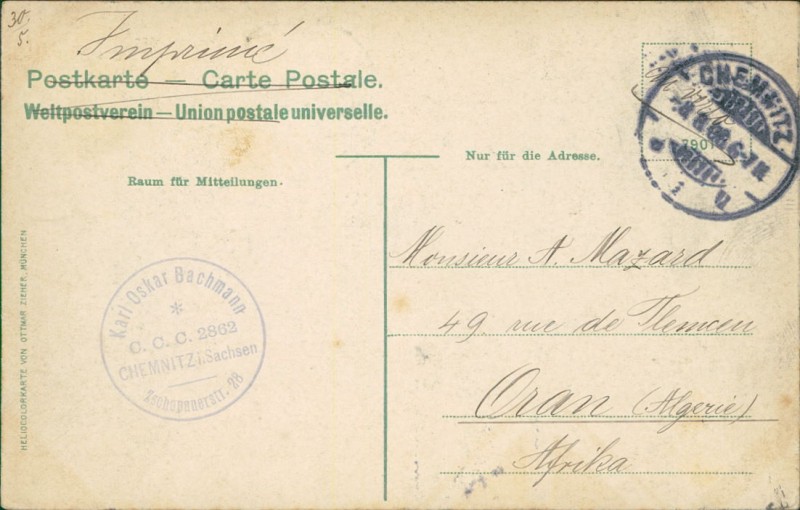 30/5.
Imprimé
Postkarte — Carte Postale.
Weltpostverein — Union postale universelle.
CHEMNITZ
Nur für die Adresse.
Raum für Mitteilungen.
HELIOCOLORKARTE VON OTTMAR ZIEHER, MÜNCHEN
Karl Oskar Bachmann
*
C. C. C. 2862
CHEMNITZ i. Sachsen
Zschopauerstr. 28
Monsieur A. Mazard
49 rue de Tlemcen
Oran (Algerie)
Afrika